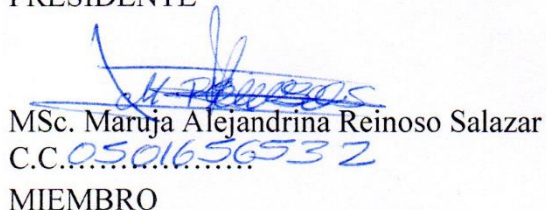 PRESIDENTE
M. Reinoso S.
MSc. Maruja Alejandrina Reinoso Salazar
C.C. 0501656532
MIEMBRO